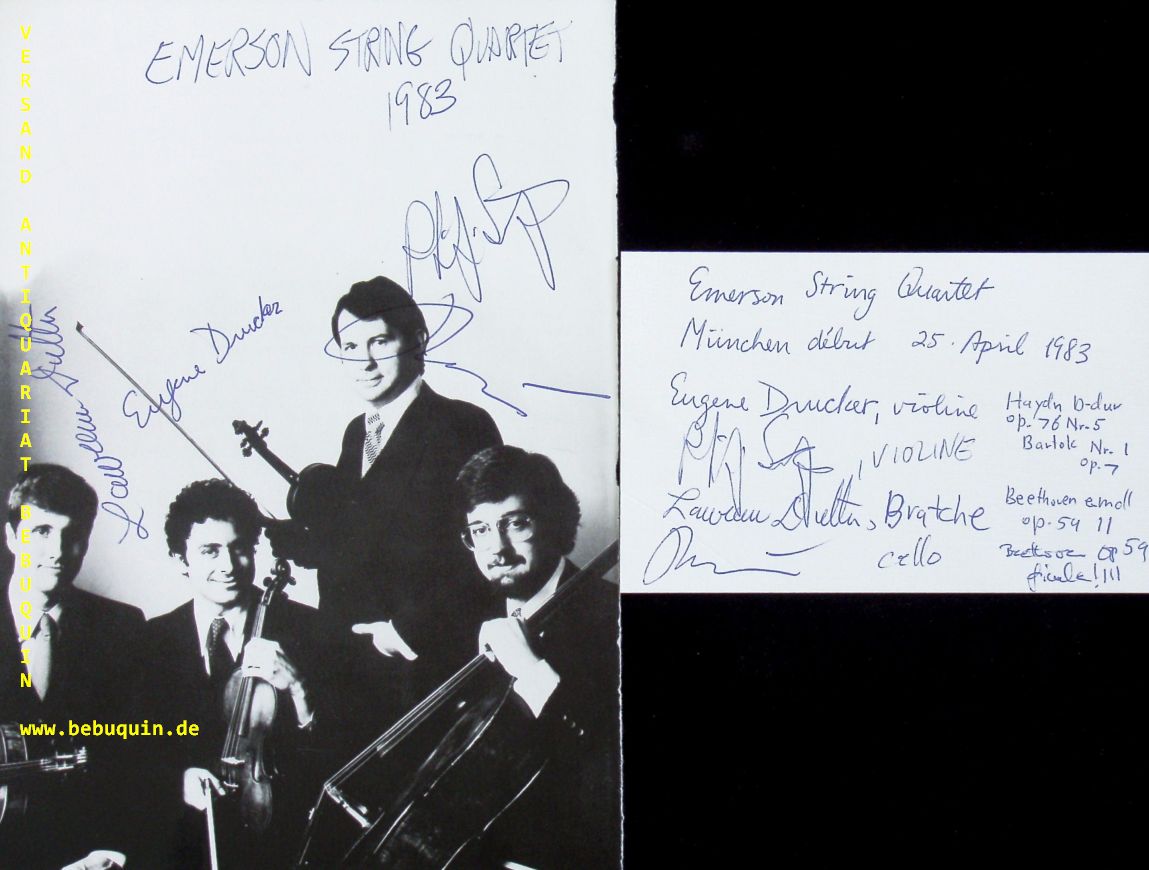 EMERSON STRING QUARTET
1983
Eugene Drucker
VERSAND ANTIQUARIAT BEBUQUIN
www.bebuquin.de
Emerson String Quartet
München début 25. April 1983
Eugene Drucker, violine
, VIOLINE
Bratche
cello
Haydn D-dur
op. 76 Nr. 5
Bartok Nr. 1
op. 7
Beethoven emoll
op. 59 II
op 59